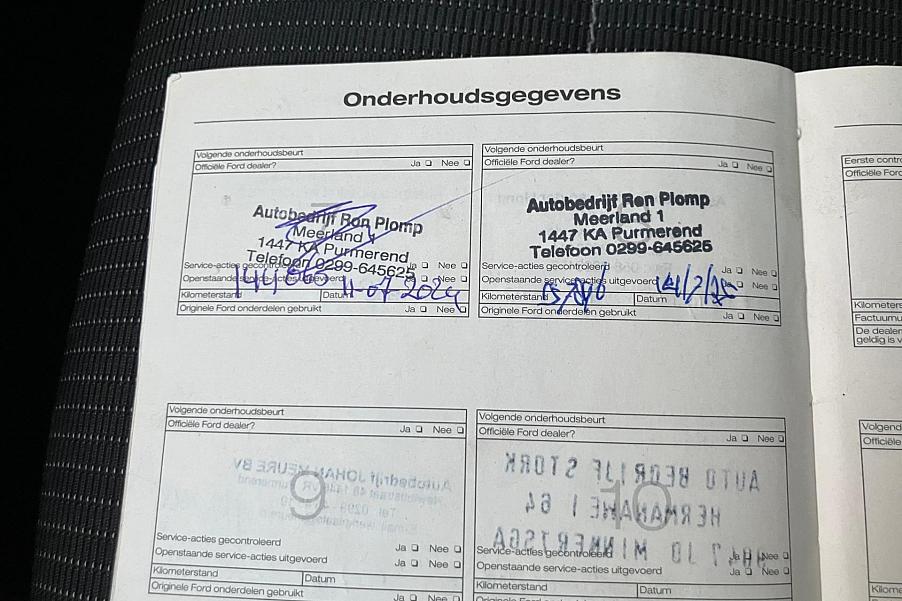 Onderhoudsgegevens
Volgende onderhoudsbeurt
Officiële Ford dealer? Ja Nee
Autobedrijf Ron Plomp
Meerland 1
1447 KA Purmerend
Telefoon 0299-645625
Service-acties gecontroleerd Ja Nee
Openstaande service-acties uitgevoerd Nee
Kilometerstand Datum 11-07-2024
Originele Ford onderdelen gebruikt Ja Nee
Volgende onderhoudsbeurt
Officiële Ford dealer? Ja Nee
Autobedrijf Ron Plomp
Meerland 1
1447 KA Purmerend
Telefoon 0299-645625
Service-acties gecontroleerd Ja Nee
Openstaande service-acties uitgevoerd Nee
Kilometerstand Datum
Originele Ford onderdelen gebruikt Ja Nee
Volgende onderhoudsbeurt
Officiële Ford dealer? Ja Nee
9
Service-acties gecontroleerd Ja Nee
Openstaande service-acties uitgevoerd Ja Nee
Kilometerstand Datum
Originele Ford onderdelen gebruikt Ja Nee
Volgende onderhoudsbeurt
Officiële Ford dealer? Ja Nee
AUTO BEDRIJF STORK
10
Service-acties gecontroleerd Ja Nee
Openstaande service-acties uitgevoerd Ja Nee
Kilometerstand Datum
Eerste contro
Officiële Ford
Kilometers
Factuurnu
De dealer
geldig is v
Volgend
Officiële
Kilome